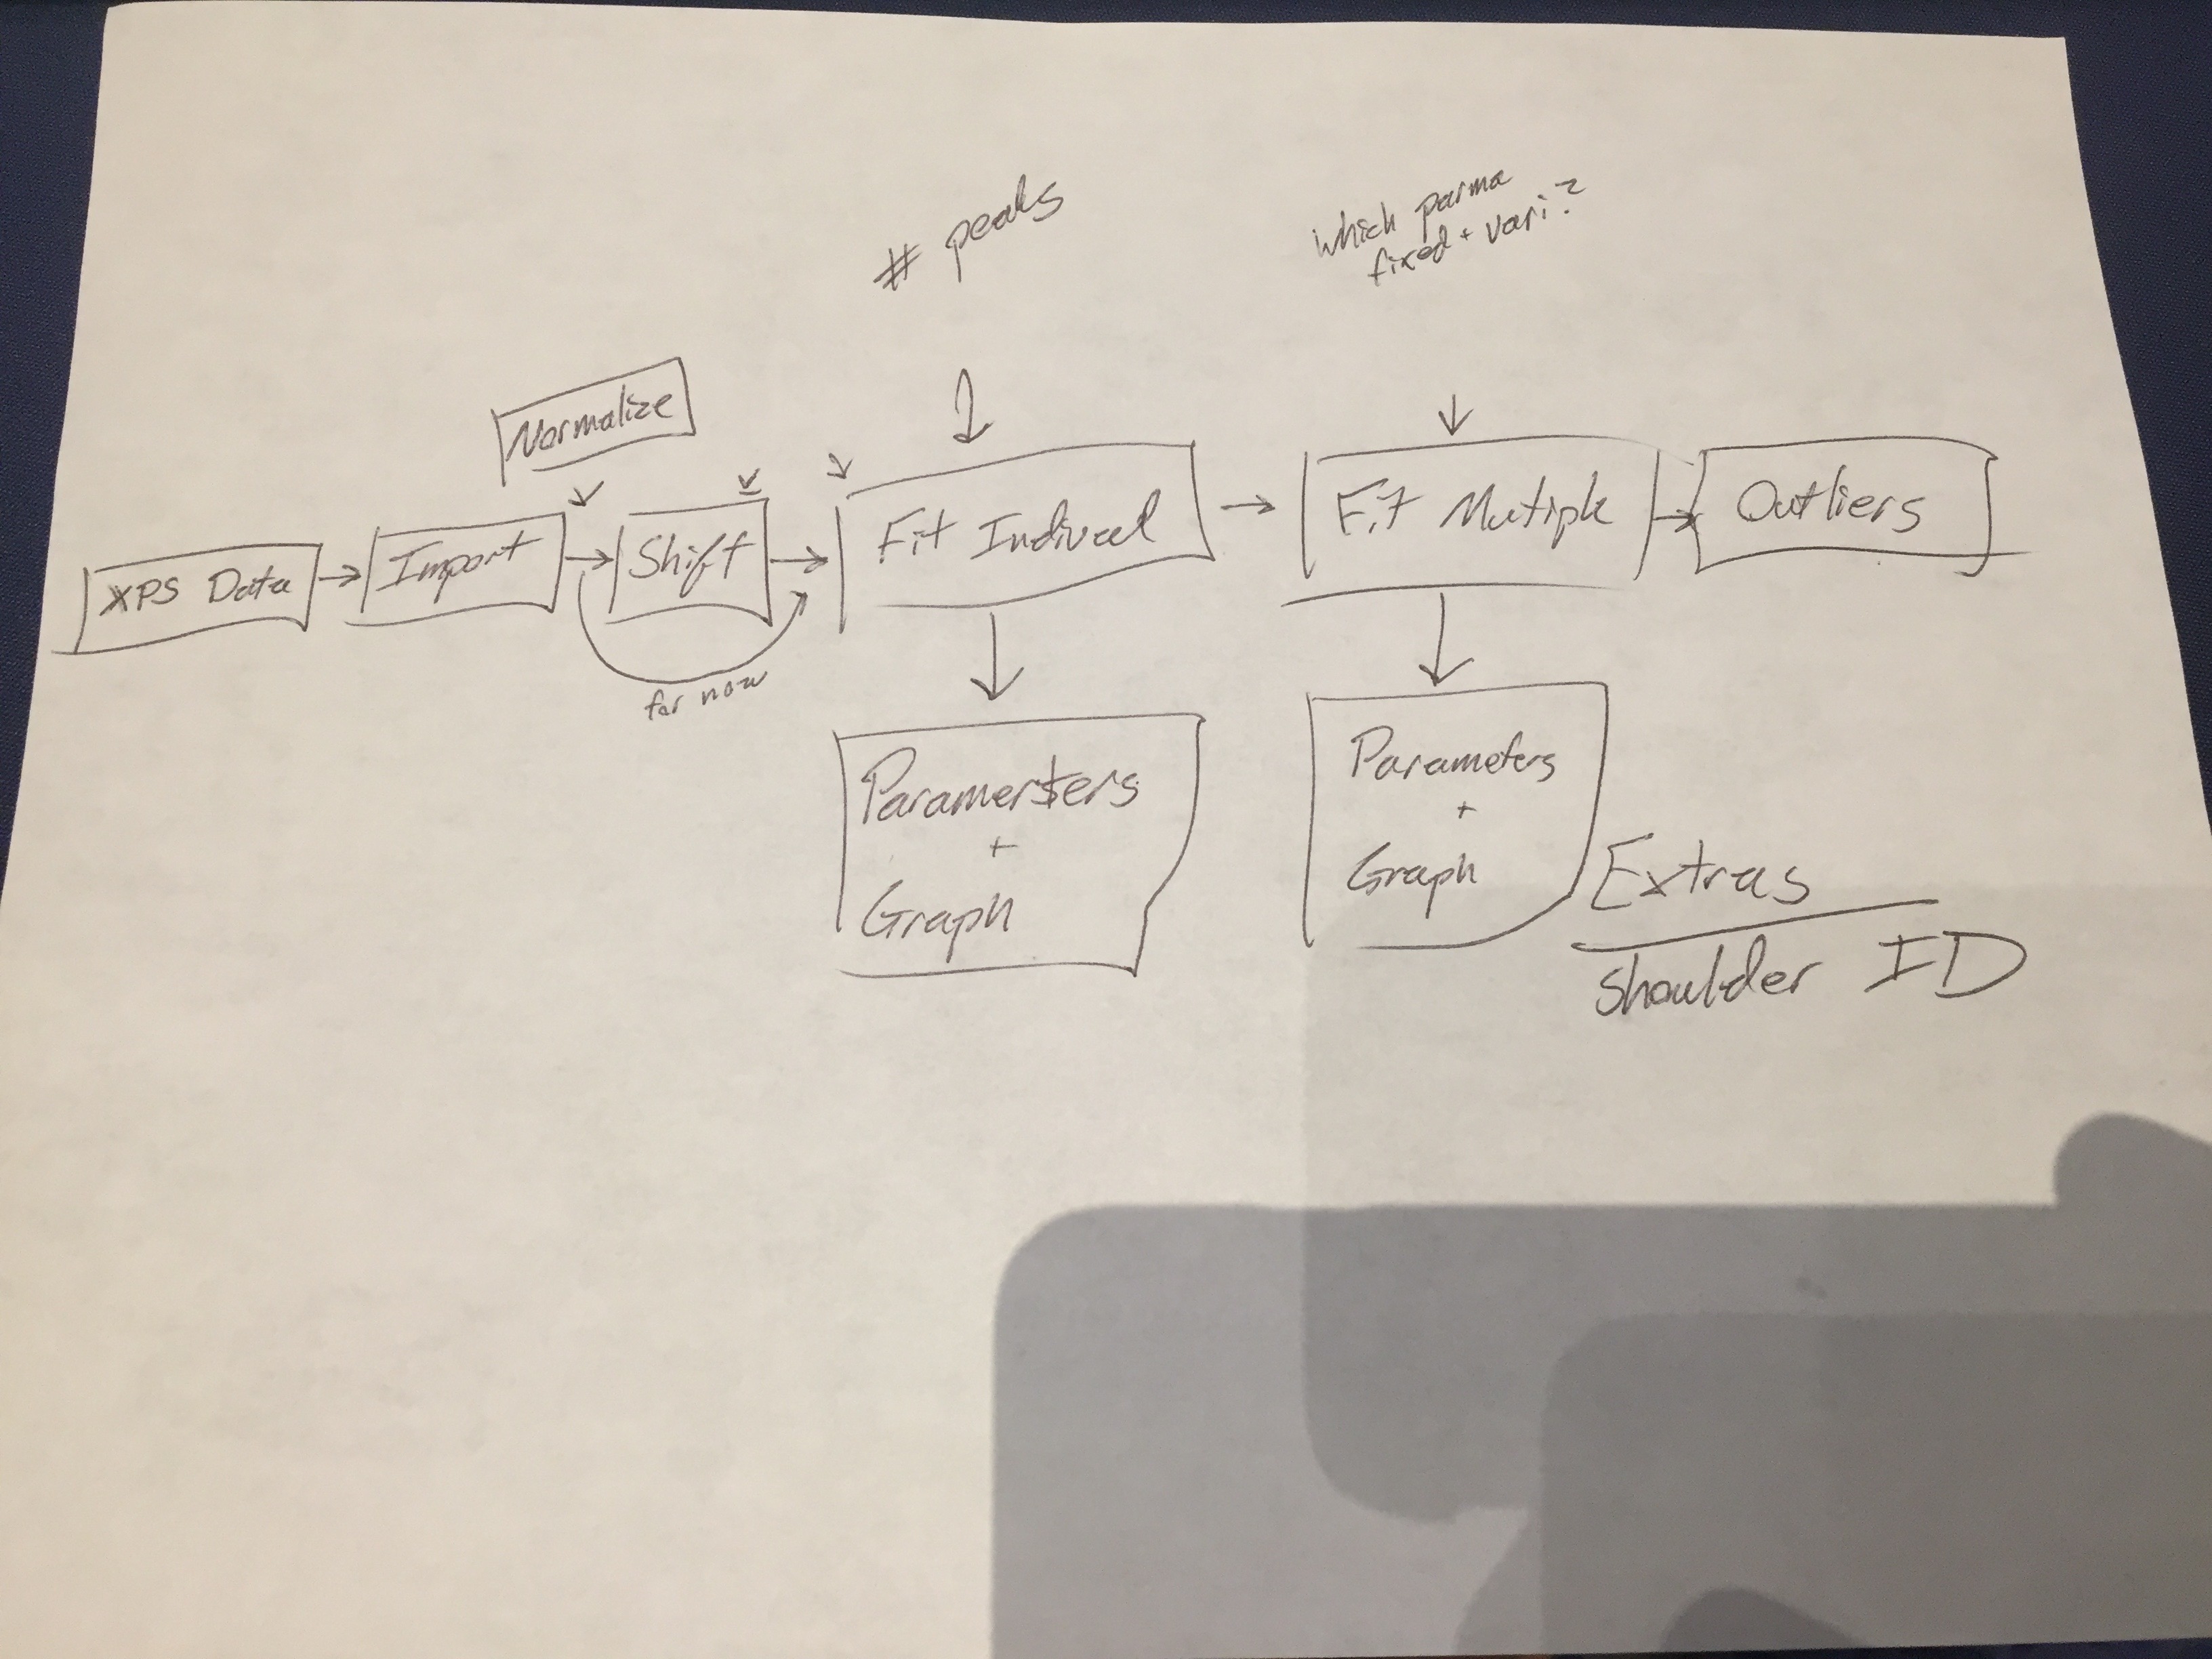 # peaks
which parma
fixed + vari?
Normalize
XPS Data
Import
Shift
Fit Indiveel
Fit Mutiple
Outliers
for now
Paramersters
+
Graph
Parameters
+
Graph
Extras
shoulder ID